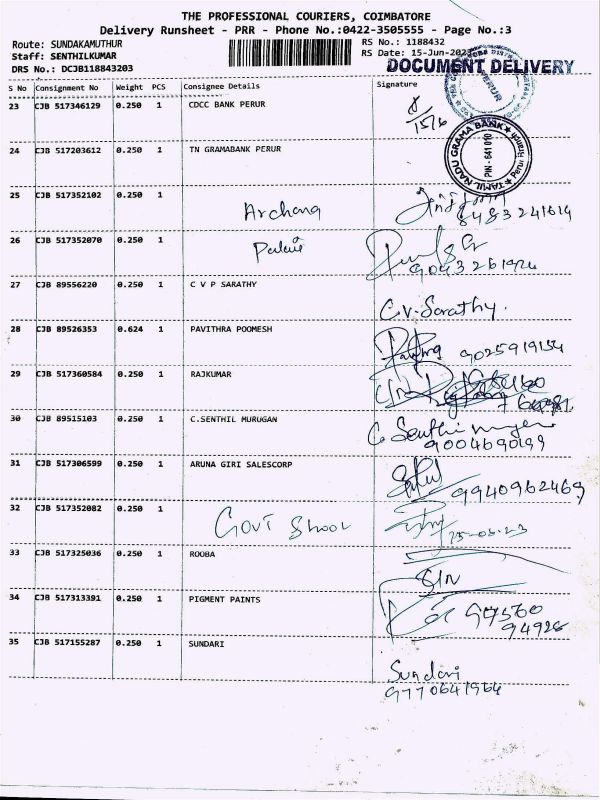 THE PROFESSIONAL COURIERS, COIMBATORE
Delivery Runsheet - PRR - Phone No.:0422-3505555 - Page No.:3
Route: SUNDAKAMUTHUR
RS No.: 1188432
Staff: SENTHILKUMAR
RS Date: 15-Jun-2023
DRS No.: DCJB118843203
DOCUMENT DELIVERY
PERUR
S No Consignment No Weight PCS Consignee Details Signature
23 CJB 517346129 0.250 1 CDCC BANK PERUR
15/6
24 CJB 517203612 0.250 1 TN GRAMABANK PERUR
TAMIL NADU GRAMA BANK
PIN - 641 010
Perur Branch
25 CJB 517352102 0.250 1
Archana
8483241614
26 CJB 517352070 0.250 1
27 CJB 89556220 0.250 1 C V P SARATHY
C.V. Sarathy.
28 CJB 89526353 0.624 1 PAVITHRA POOMESH
9025919154
29 CJB 517360584 0.250 1 RAJKUMAR
30 CJB 89515103 0.250 1 C.SENTHIL MURUGAN
C. Senthil
9004690199
31 CJB 517306599 0.250 1 ARUNA GIRI SALESCORP
9940962469
32 CJB 517352082 0.250 1
GOVT School
15-06-23
33 CJB 517325036 0.250 1 ROOBA
34 CJB 517313391 0.250 1 PIGMENT PAINTS
97560
94926
35 CJB 517155287 0.250 1 SUNDARI
Sundari
9770641964